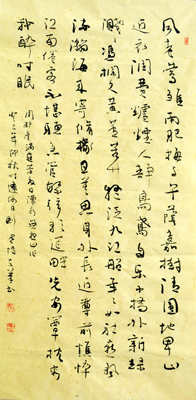 風老鶯雛雨肥梅子午陰嘉樹清圓地卑山
近衣潤費爐煙人靜烏鳶自樂小橋外新綠
濺濺憑闌久黃蘆苦竹擬泛九江船年年如社燕飄
流瀚海來寄修椽且莫思身外長近尊前憔悴
江南倦客不堪聽急管繁弦歌筵畔先安簟枕容
我醉時眠
周邦彥滿庭芳夏日溧水無想山作